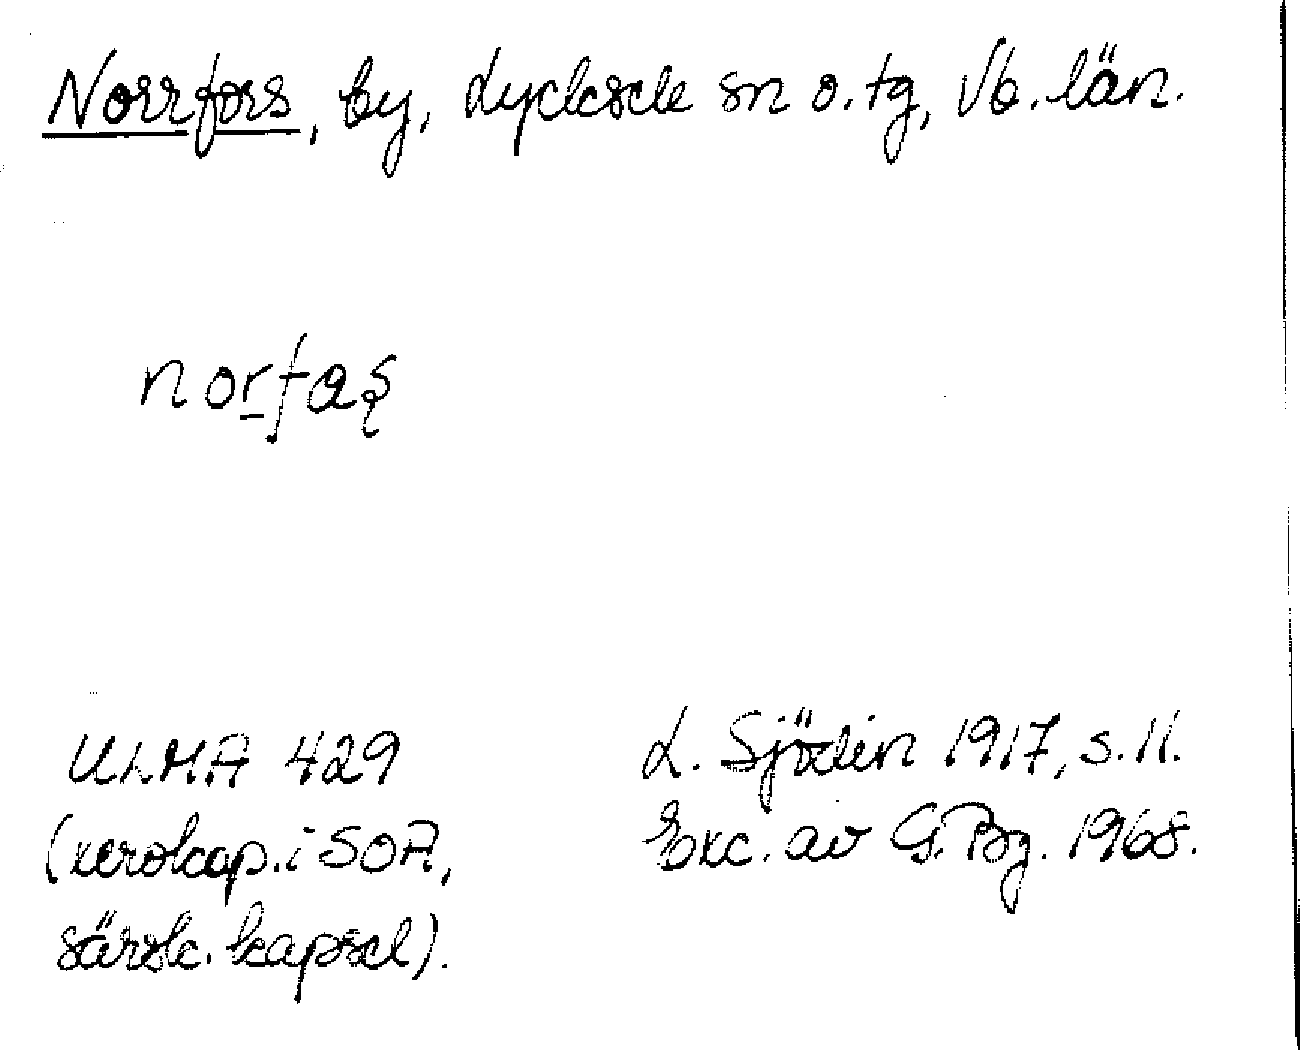 Norrfors, by, Lycksele sn o. tg, Vb. län.
norfas
ULMA 429
(xerokop. i SOA,
särsk. kapsel).
L. Sjödin 1917, s. 11.
Exc. av G. Bg. 1968.